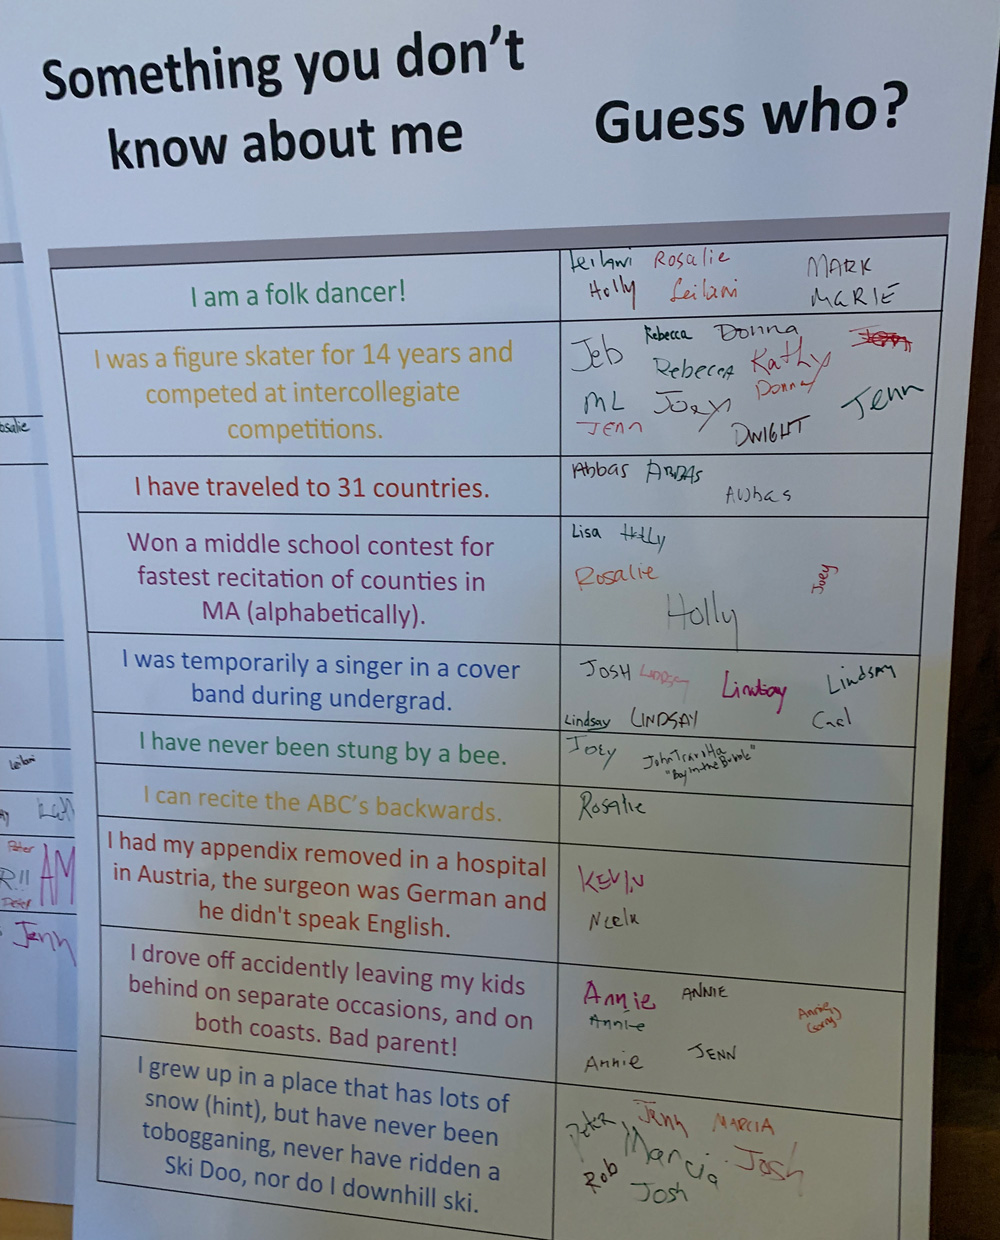 Something you don't
know about me
Guess who?
I am a folk dancer!
Leilani Rosalie MARK
Holly Leilani MARIE
I was a figure skater for 14 years and
competed at intercollegiate
competitions.
Jeb Rebecca Donna
Rebecca Kathy
Donna
ML Joey Jenn
JENN DWIGHT
I have traveled to 31 countries.
Abbas ABBAS
Abbas
Won a middle school contest for
fastest recitation of counties in
MA (alphabetically).
Lisa Holly
Rosalie Joey
Holly
I was temporarily a singer in a cover
band during undergrad.
JOSH Lindsay Lindsay Lindsay
Lindsay LINDSAY Carl
I have never been stung by a bee.
Joey John Travolta
"Boy in the Bubble"
I can recite the ABC's backwards.
Rosalie
I had my appendix removed in a hospital
in Austria, the surgeon was German and
he didn't speak English.
KEVIN
I drove off accidently leaving my kids
behind on separate occasions, and on
both coasts. Bad parent!
Annie ANNIE
Annie Annie
(sorry)
Annie JENN
I grew up in a place that has lots of
snow (hint), but have never been
tobogganing, never have ridden a
Ski Doo, nor do I downhill ski.
Peter Jenn MARCIA
Marcia Josh
Rob Josh
osalie
Leilani
Peter
AM
Peter
Jenn